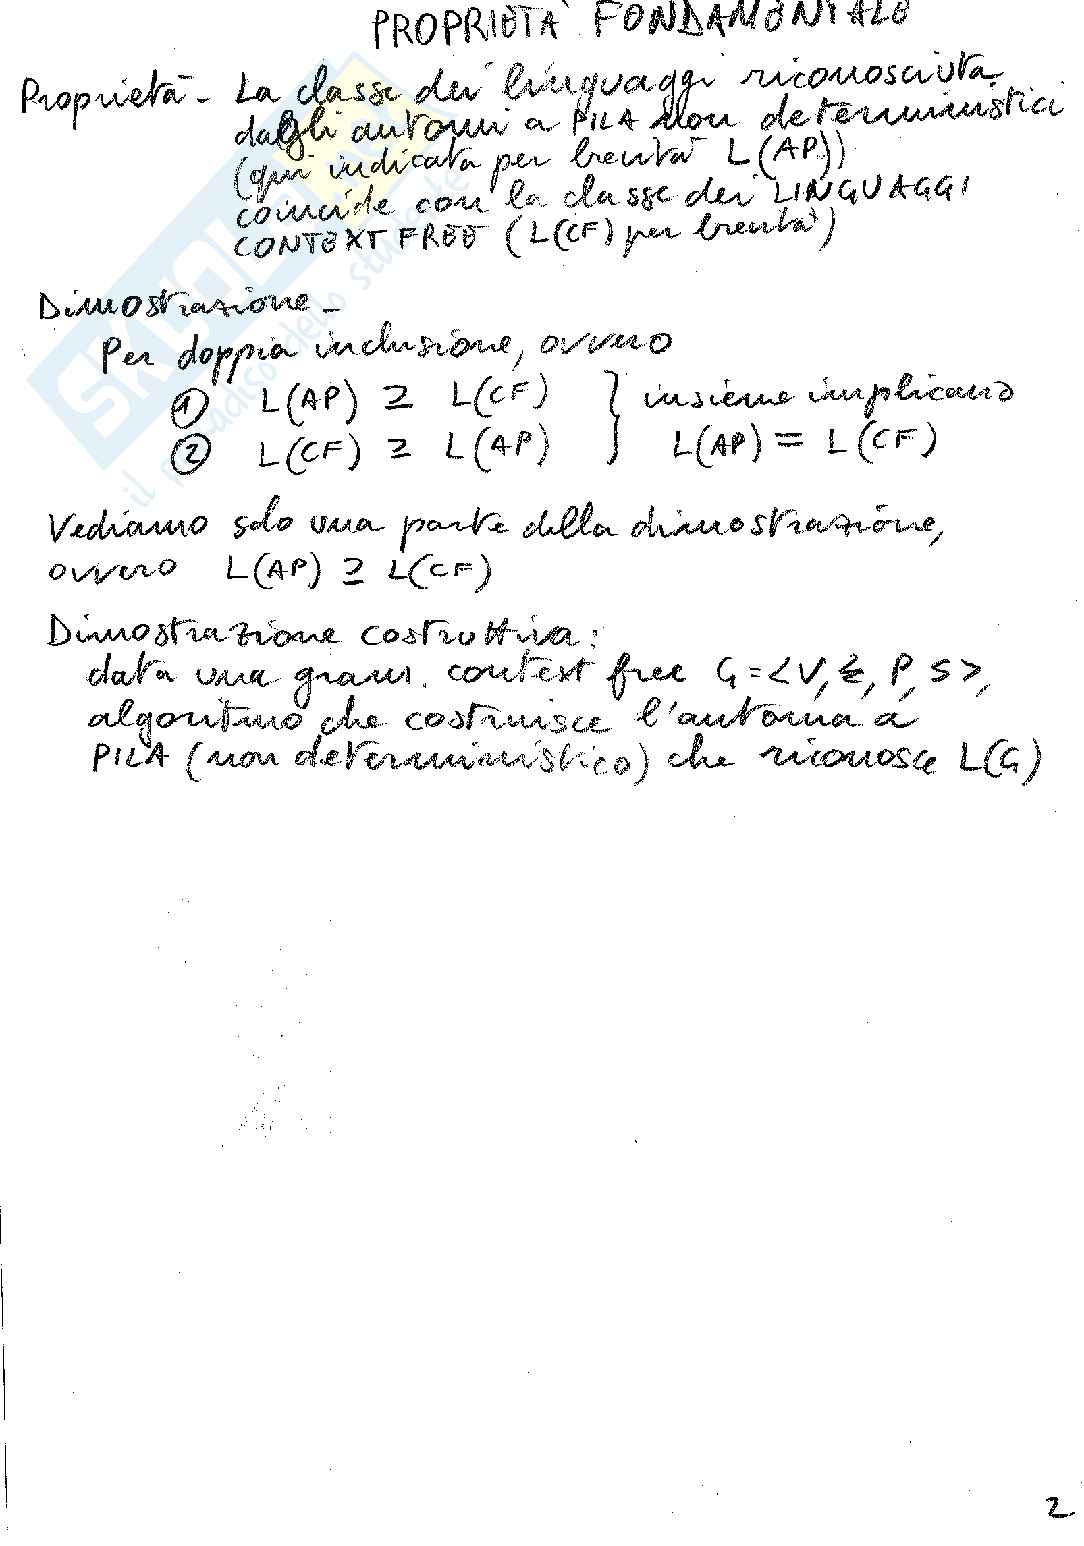 PROPRIETÀ FONDAMENTALE
Proprietà - La classe dei linguaggi riconosciuta
dagli automi a PILA non deterministici
(qui indicata per brevità L(AP))
coincide con la classe dei LINGUAGGI
CONTEXT FREE (L(CF) per brevità)
Dimostrazione -
Per doppia inclusione, ovvero
① L(AP) ⊇ L(CF) } insieme implicano
② L(CF) ⊇ L(AP) L(AP) = L(CF)
Vediamo solo una parte della dimostrazione,
ovvero L(AP) ⊇ L(CF)
Dimostrazione costruttiva:
data una gram. context free G = <V, Σ, P, S>,
algoritmo che costruisce l'automa a
PILA (non deterministico) che riconosce L(G)
2
SKUOLA
il paradiso dello studente